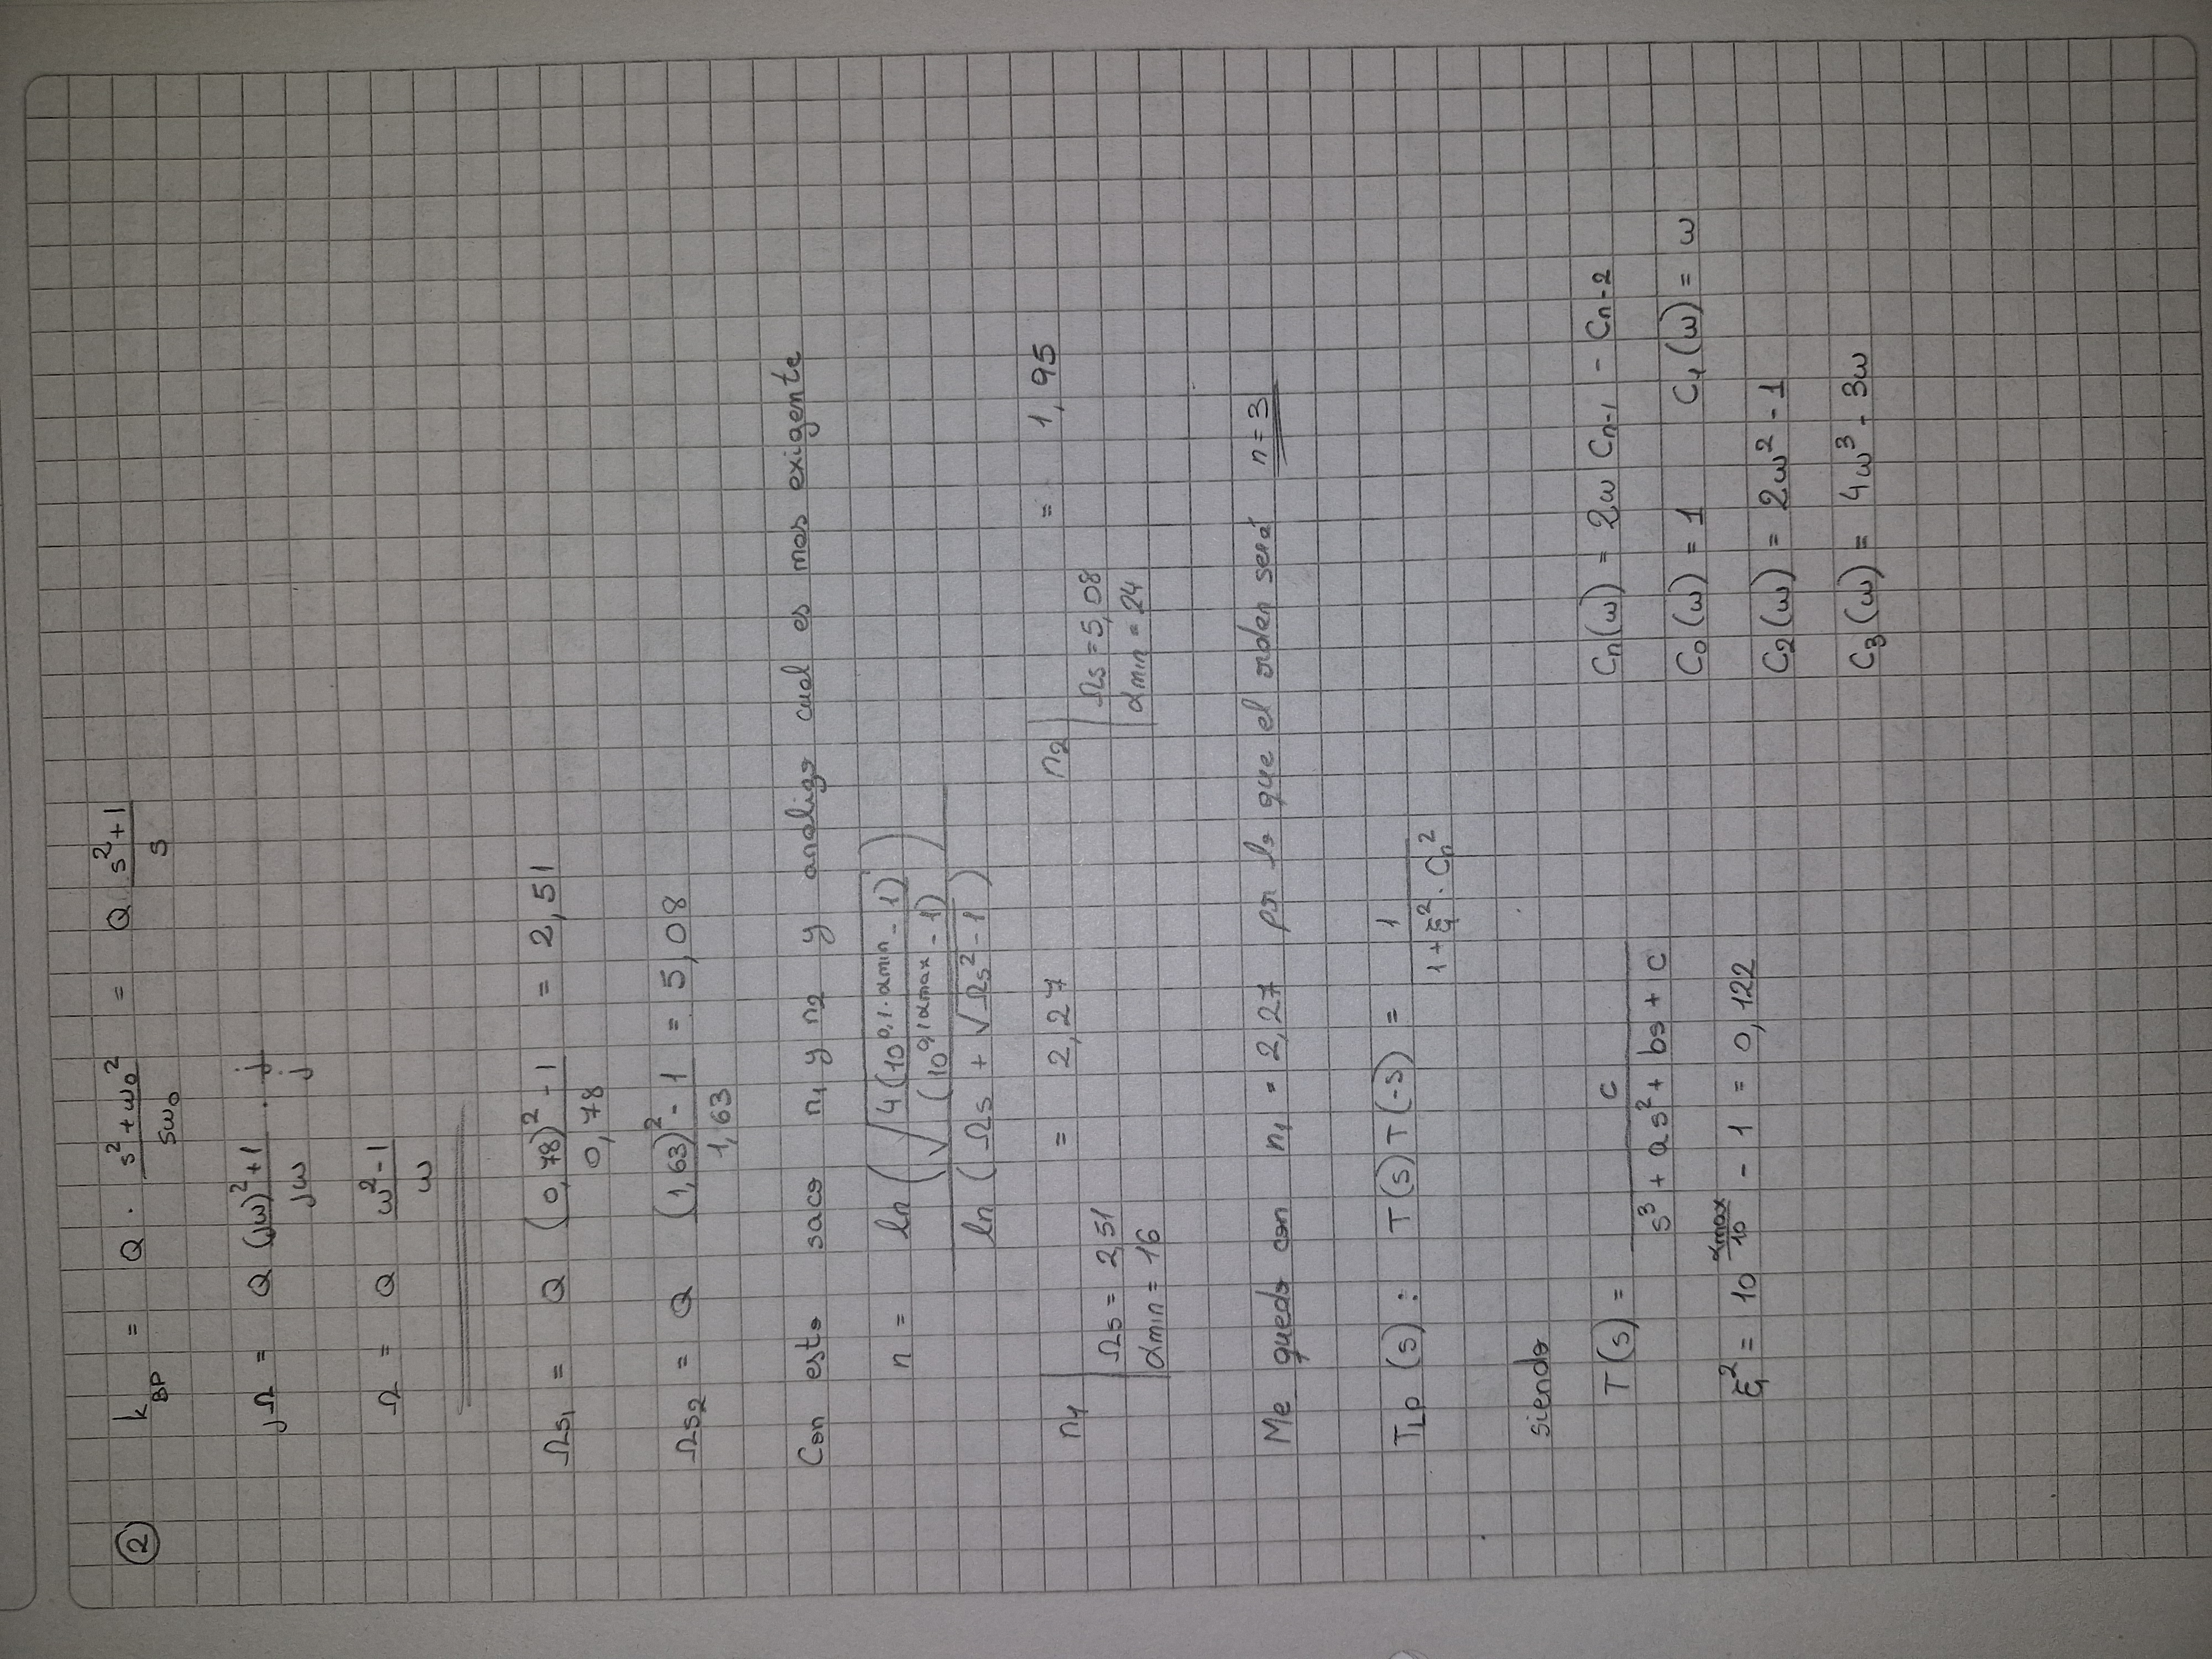 ② k_BP = Q · (s² + ω₀²)/(sω₀) = Q (s² + 1)/s
jΩ = Q ((jω)² + 1)/(jω) · j/j
Ω = Q (ω² - 1)/ω
Ωs₁ = Q ((0,78)² - 1)/0,78 = 2,51
Ωs₂ = Q ((1,63)² - 1)/1,63 = 5,08
Con esto saco n₁ y n₂ y analizo cual es mas exigente
n = ln(√(4(10^(0,1·αmin) - 1)/(10^(0,1αmax) - 1)))/ln(Ωs + √(Ωs² - 1))
n₁ | Ωs = 2,51 αmin = 16 = 2,27 n₂ | Ωs = 5,08 αmin = 24 = 1,95
Me quedo con n₁ = 2,27 por lo que el orden será n = 3
T_LP (s) : T(s) T(-s) = 1/(1 + ξ² · Cn²)
siendo
T(s) = c/(s³ + as² + bs + c)
ξ² = 10^(αmax/10) - 1 = 0,122
Cn(ω) = 2ω Cn-1 - Cn-2
C₀(ω) = 1 C₁(ω) = ω
C₂(ω) = 2ω² - 1
C₃(ω) = 4ω³ - 3ω